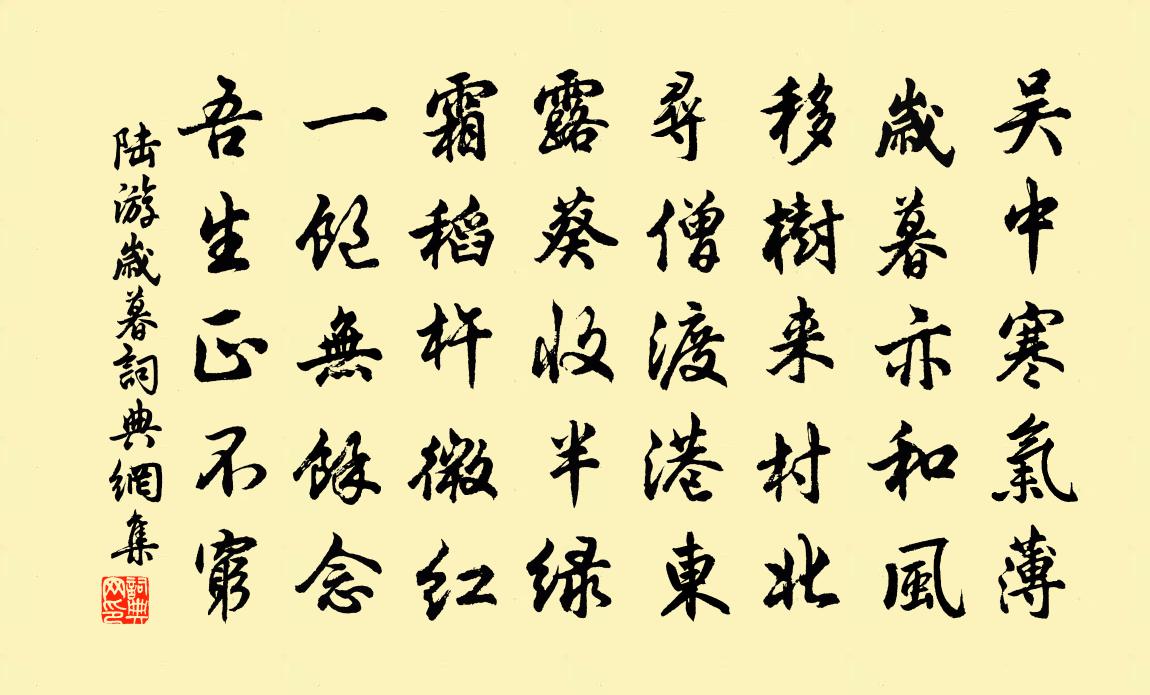 吴中寒氣薄
歲暮亦和風
移樹来村北
尋僧渡港東
露葵收半緑
霜稻杵微红
一飽無餘念
吾生正不窮
陆游歲暮詞典網集
詞典網印